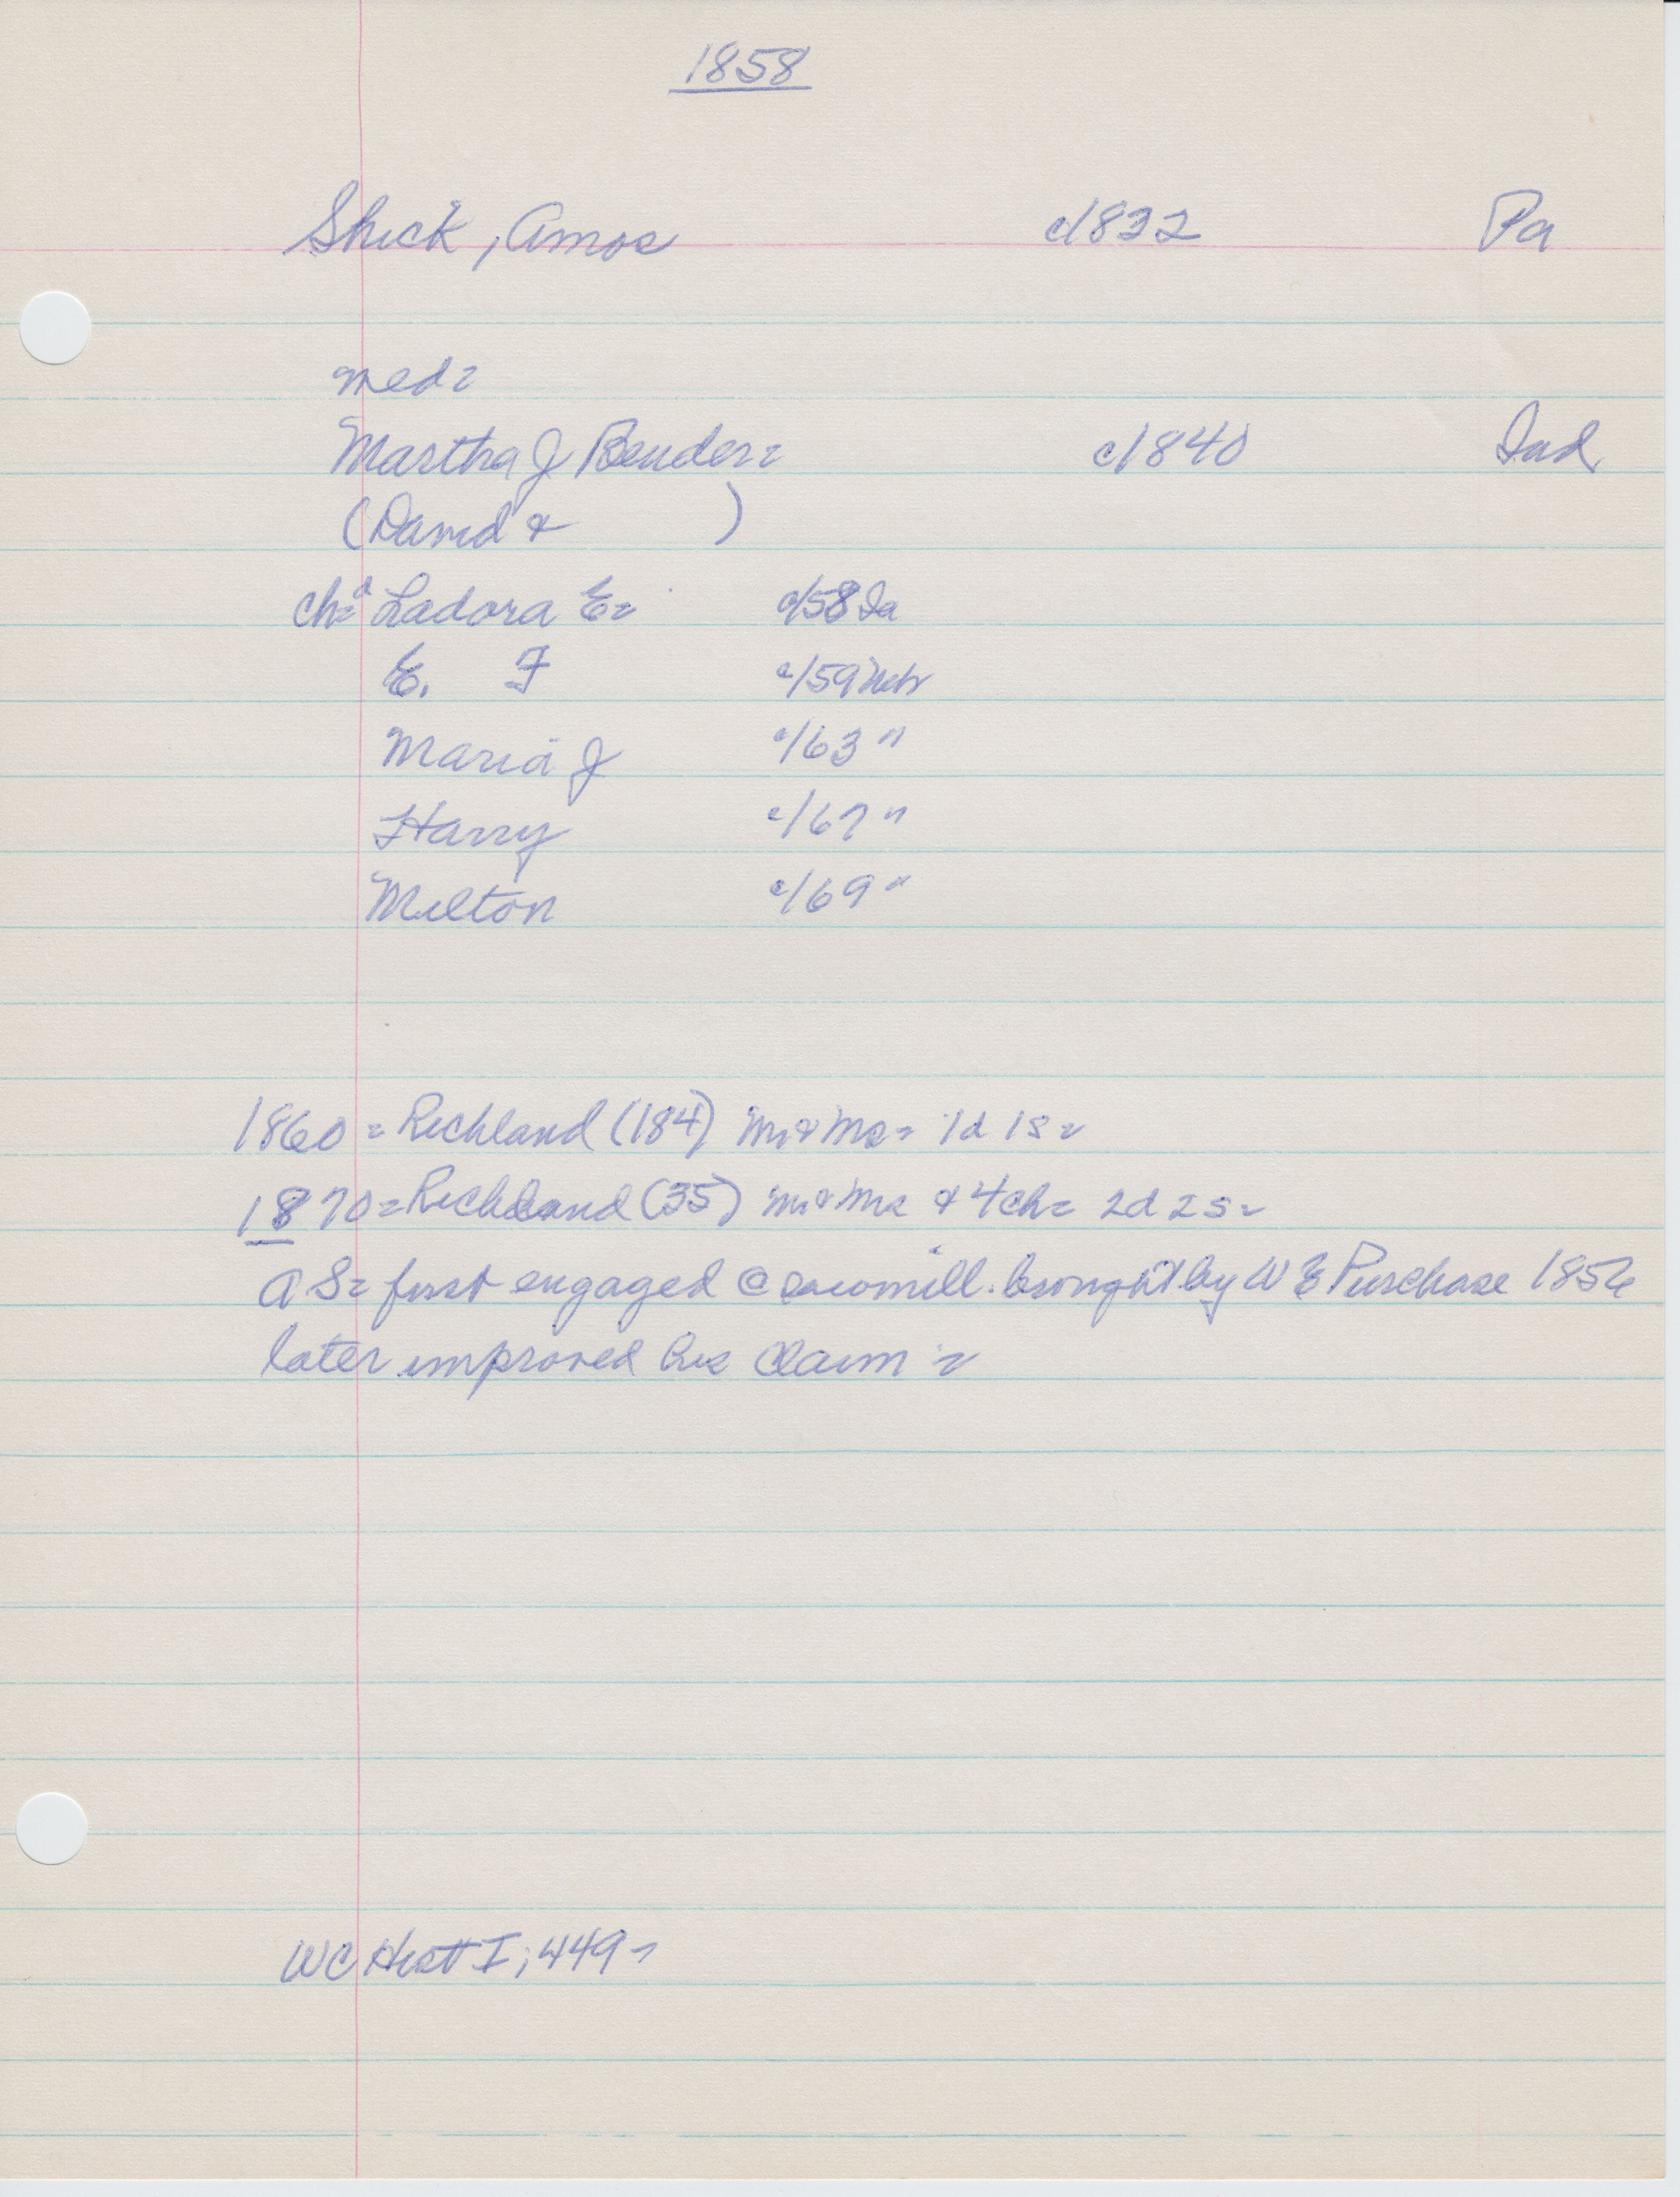 1858
Shick, Amos c/832 Pa
med=
Martha J Bender= c/840 Ind
(David & )
ch= Ladora E= c/58 Ia
E. F c/59 Neb
Maria J c/63 "
Harry c/67 "
Milton c/69 "
1860 = Richland (184) Mr & Mrs = 1d 1s =
1870 = Richland (35) Mr & Mrs & 4ch = 2d 2s =
AS = first engaged @ sawmill brought by W E Purchase 1856
later improved his claim =
WC Hist I; 449 =